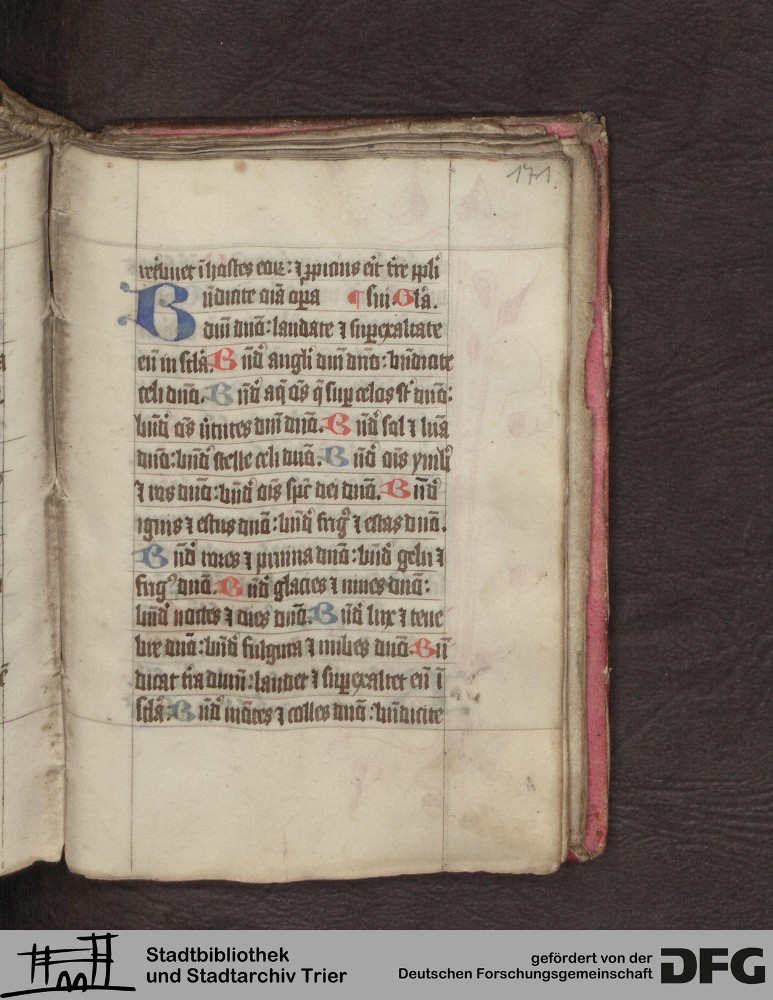 171.
retribuet ī hostes eoꝝ : ⁊ ꝓpicius erit tre ppli
Bn̄dicite oīa oꝑa ¶ sui. Gla.
dn̄i dn̄o : laudate ⁊ suꝑexaltate
eū in scla. Bn̄d angli dn̄i dn̄o : bn̄dicite
celi dn̄o. Bn̄d aq̄ oēs q̄ suꝑ celos st dn̄o :
bn̄d oēs v̓tutes dn̄i dn̄o. Bn̄d sol ⁊ luā
dn̄o : bn̄d stelle celi dn̄o. Bn̄d oīs ymbꝰ
⁊ ros dn̄o : bn̄d oīs spc̄ dei dn̄o. Bn̄d
ignis ⁊ estus dn̄o : bn̄d frigꝰ ⁊ estas dn̄o.
Bn̄d rores ⁊ pruina dn̄o : bn̄d gelu ⁊
frigꝰ dn̄o. Bn̄d glacies ⁊ niues dn̄o :
bn̄d noctes ⁊ dies dn̄o. Bn̄d lux ⁊ tene
bre dn̄o : bn̄d fulgura ⁊ nubes dn̄o. Bn̄
dicat tra dnm̄ : laudet ⁊ suꝑexaltet eū ī
scla. Bn̄d mōtes ⁊ colles dn̄o : bn̄dicite
Stadtbibliothek
und Stadtarchiv Trier
gefördert von der
Deutschen Forschungsgemeinschaft DFG